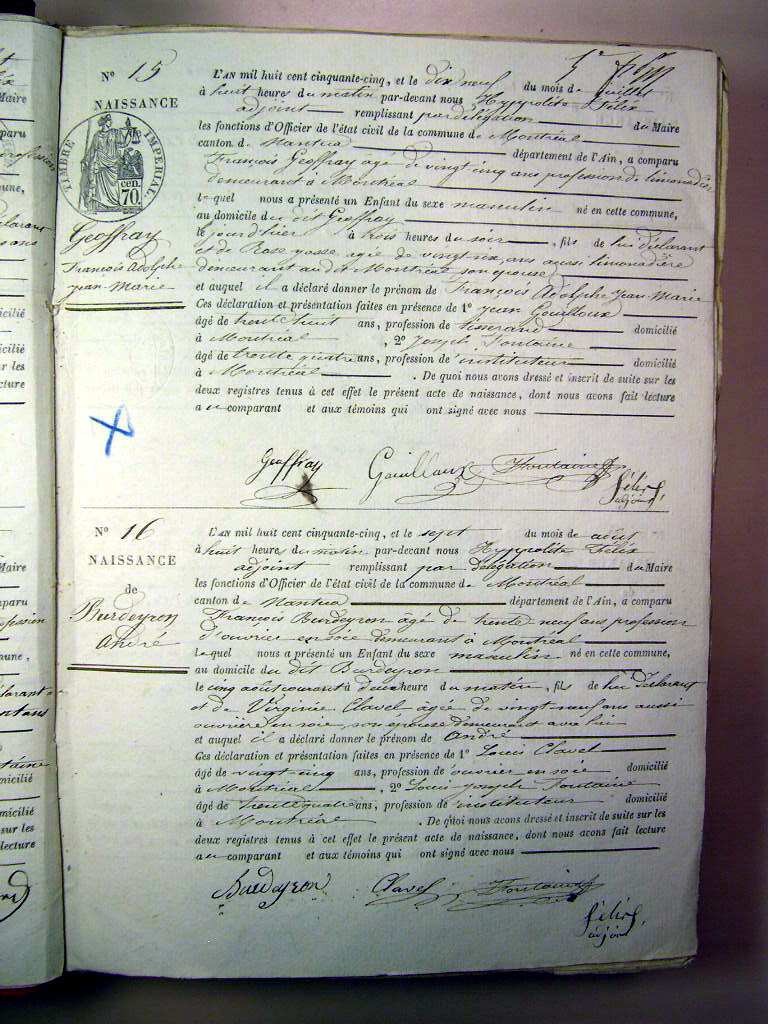 N° 15
NAISSANCE
TIMBRE IMPERIAL
70 cen.
Geoffray
François Adolphe
Jean Marie
L'AN mil huit cent cinquante-cinq, et le dix neuf du mois de juillet
à huit heures du matin par-devant nous Hyppolite Félix
adjoint remplissant par délégation du Maire
les fonctions d'Officier de l'état civil de la commune de Montréal
canton de Nantua département de l'Ain, a comparu
François Geoffray âgé de vingt cinq ans profession de limonadier
demeurant à Montréal
lequel nous a présenté un Enfant du sexe masculin né en cette commune,
au domicile du dit Geoffray
le jour d'hier à trois heures du soir, fils de lui déclarant
et de Rose agée de vingt six ans aussi limonadière
demeurant au dit Montréal son épouse
et auquel il a déclaré donner le prénom de François Adolphe Jean Marie
Ces déclaration et présentation faites en présence de 1° Jean Gouilloux
âgé de trente huit ans, profession de tisserand domicilié
à Montréal, 2° Joseph Fontaine
âgé de trente quatre ans, profession d'instituteur domicilié
à Montréal. De quoi nous avons dressé et inscrit de suite sur les
deux registres tenus à cet effet le présent acte de naissance, dont nous avons fait lecture
au comparant et aux témoins qui ont signé avec nous
Geoffray Gouilloux Fontaine Félix
adjoint
N° 16
NAISSANCE
de
Burdeyron
André
L'AN mil huit cent cinquante-cinq, et le sept du mois de août
à huit heures du matin par-devant nous Hyppolite Félix
adjoint remplissant par délégation du Maire
les fonctions d'Officier de l'état civil de la commune de Montréal
canton de Nantua département de l'Ain, a comparu
François Burdeyron âgé de trente neuf ans profession
d'ouvrier en soie demeurant à Montréal
lequel nous a présenté un Enfant du sexe masculin né en cette commune,
au domicile du dit Burdeyron
le cinq août courant à deux heure du matin, fils de lui déclarant
et de Virginie Clavel âgée de vingt-neuf ans aussi
ouvrière en soie, son épouse demeurant avec lui
et auquel il a déclaré donner le prénom de André
Ces déclaration et présentation faites en présence de 1° Louis Clavel
âgé de vingt cinq ans, profession de ouvrier en soie domicilié
à Montréal, 2° Louis Joseph Fontaine
âgé de trente quatre ans, profession d'instituteur domicilié
à Montréal. De quoi nous avons dressé et inscrit de suite sur les
deux registres tenus à cet effet le présent acte de naissance, dont nous avons fait lecture
au comparant et aux témoins qui ont signé avec nous
Burdeyron Clavel Fontaine
Félix
adjoint